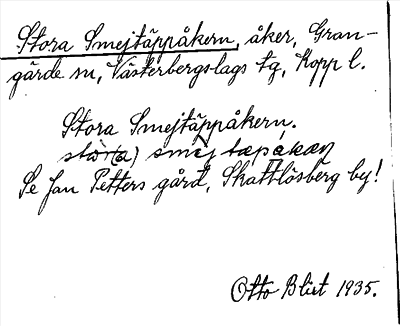 Stora Smejtäppåkern, åker, Gran-
gärde sn, Västerbergslags tg, Kopp l.
Stora Smejtäppåkern.
smej
Se Jan Petters gård, Skattlösberg by!
Otto Blixt 1935.